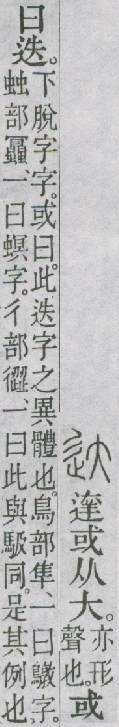 達或从大。亦形
聲也。或
曰迭。下脫字字。或曰。此迭字之異體也。鳥部隼、一曰字。
䖵部、一曰螟字。彳部、一曰此與馺同。是其例也